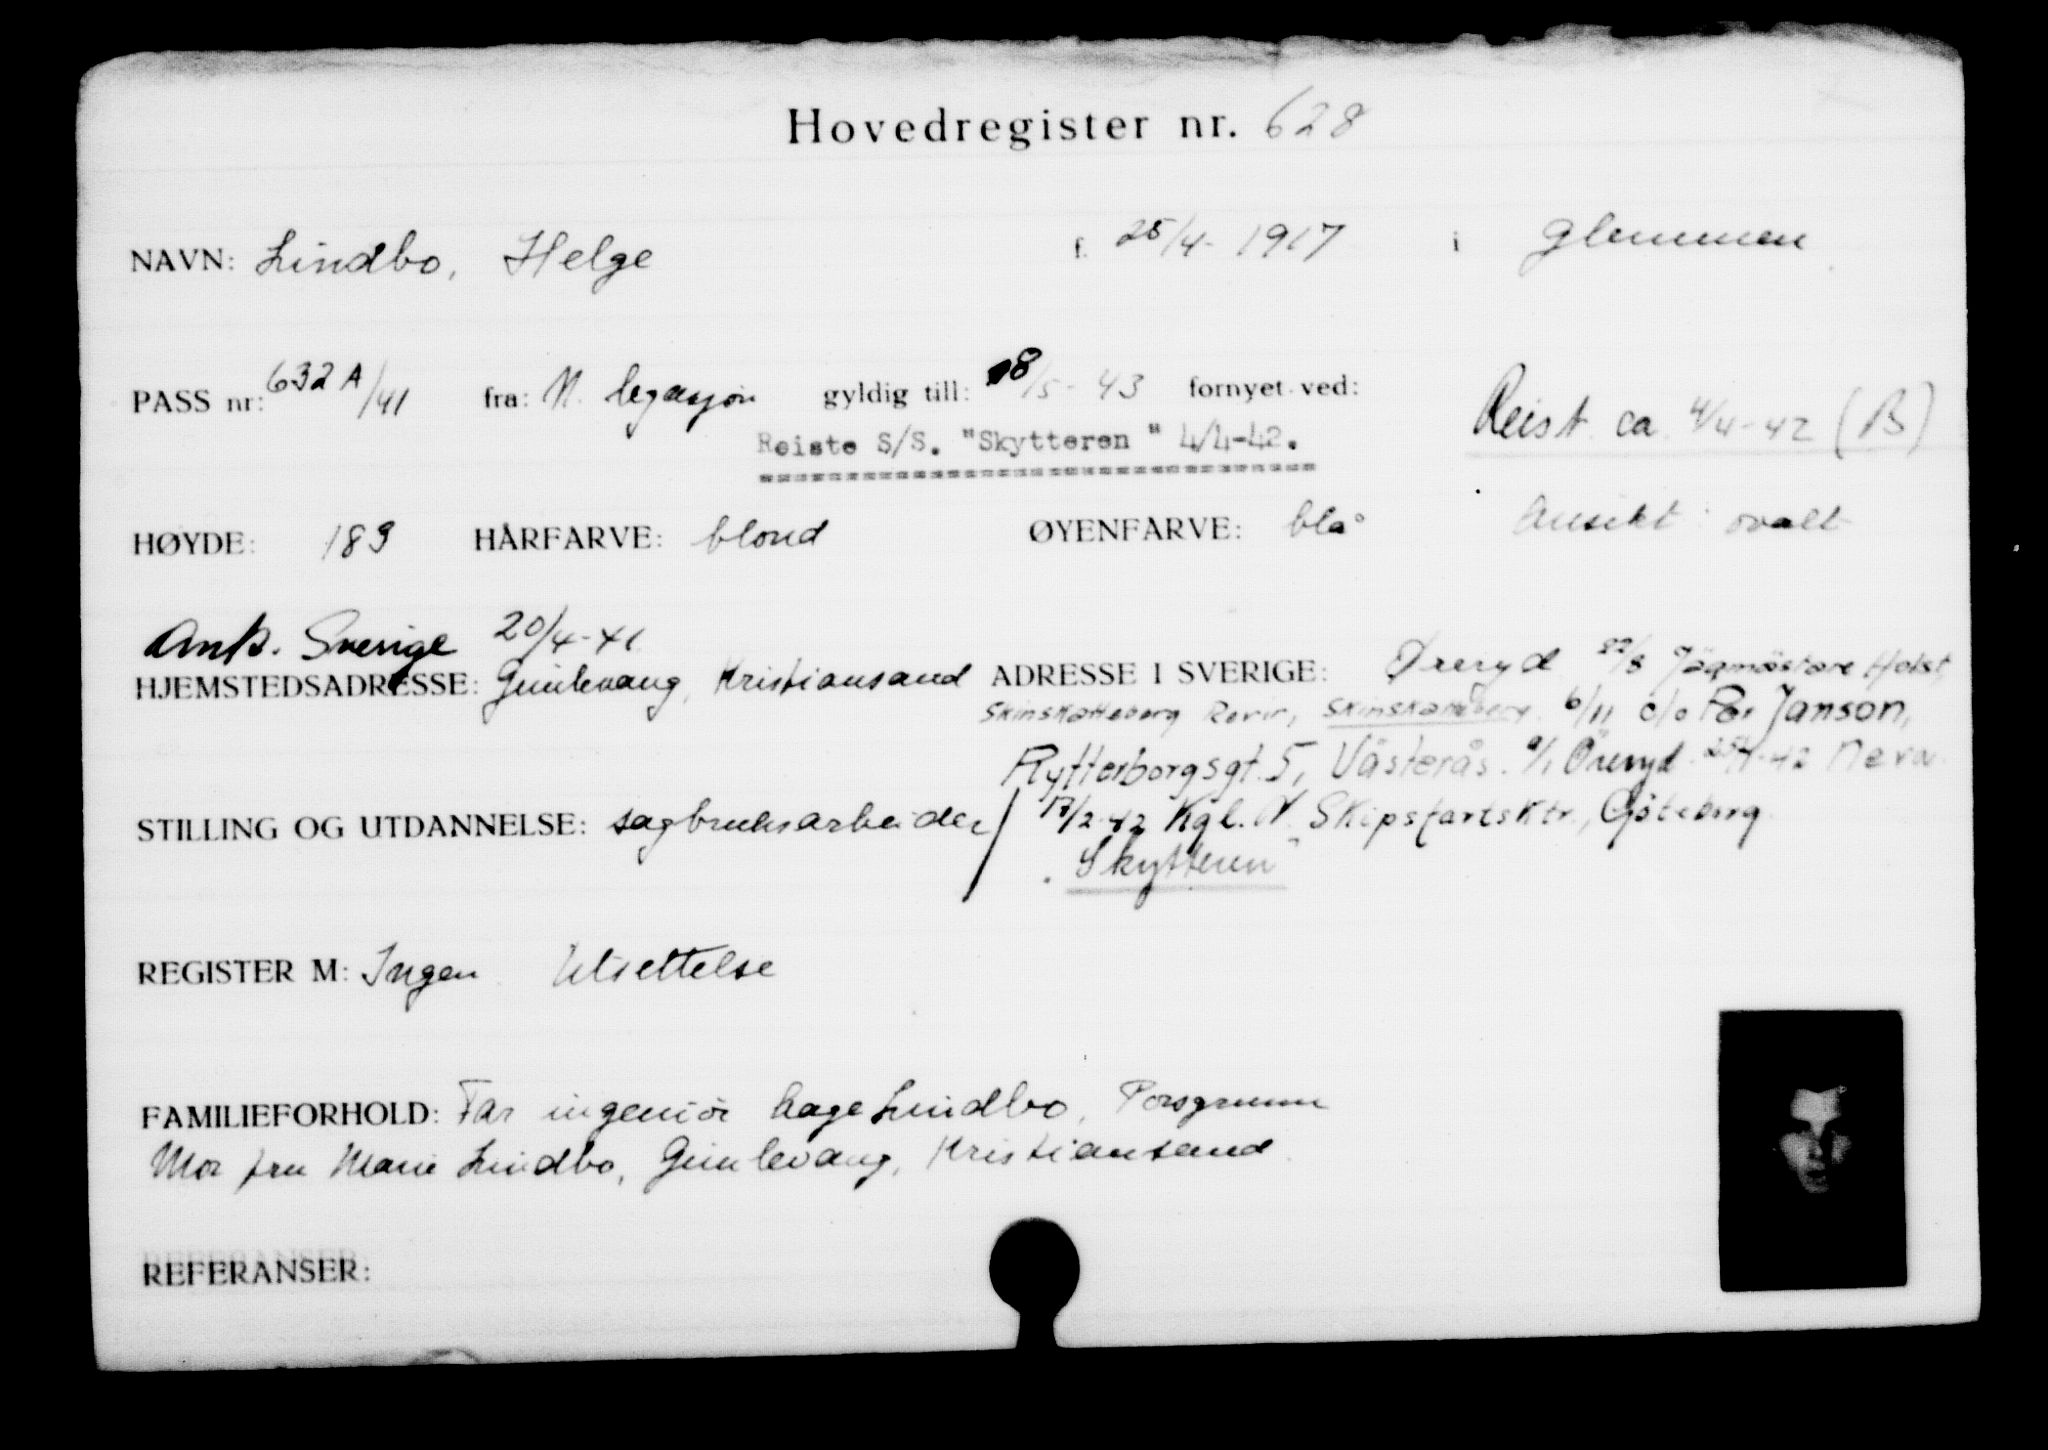 Hovedregister nr. 628
NAVN: Lindbo, Helge f. 25/4-1917 i Glemmen
PASS nr: 632A/41 fra: N. legasjon gyldig till: 8/5-43 fornyet ved: Reist ca. 4/4-42 (B)
Reiste S/S. "Skytteren" 4/4-42.
HØYDE: 183 HÅRFARVE: blond ØYENFARVE: blå Ansikt: ovalt
Ank. Sverige 20/4-41
HJEMSTEDSADRESSE: Gimlevang, Kristiansand ADRESSE I SVERIGE: Øreryd 22/8 Jägmästare Holst,
Skinskatteberg Revir, 6/11 c/o Per Janson,
Rytterborgsgt. 5, Västerås. Öreryd
STILLING OG UTDANNELSE: sagbruksarbeider / 17/2-42 Kgl. N. Skipsfartsktr., Göteborg
"Skytteren"
REGISTER M: Ingen Utsettelse
FAMILIEFORHOLD: Far ingeniør Aage Lindbo, Porsgrunn
Mor fru Marie Lindbo, Gimlevang, Kristiansand.
REFERANSER: